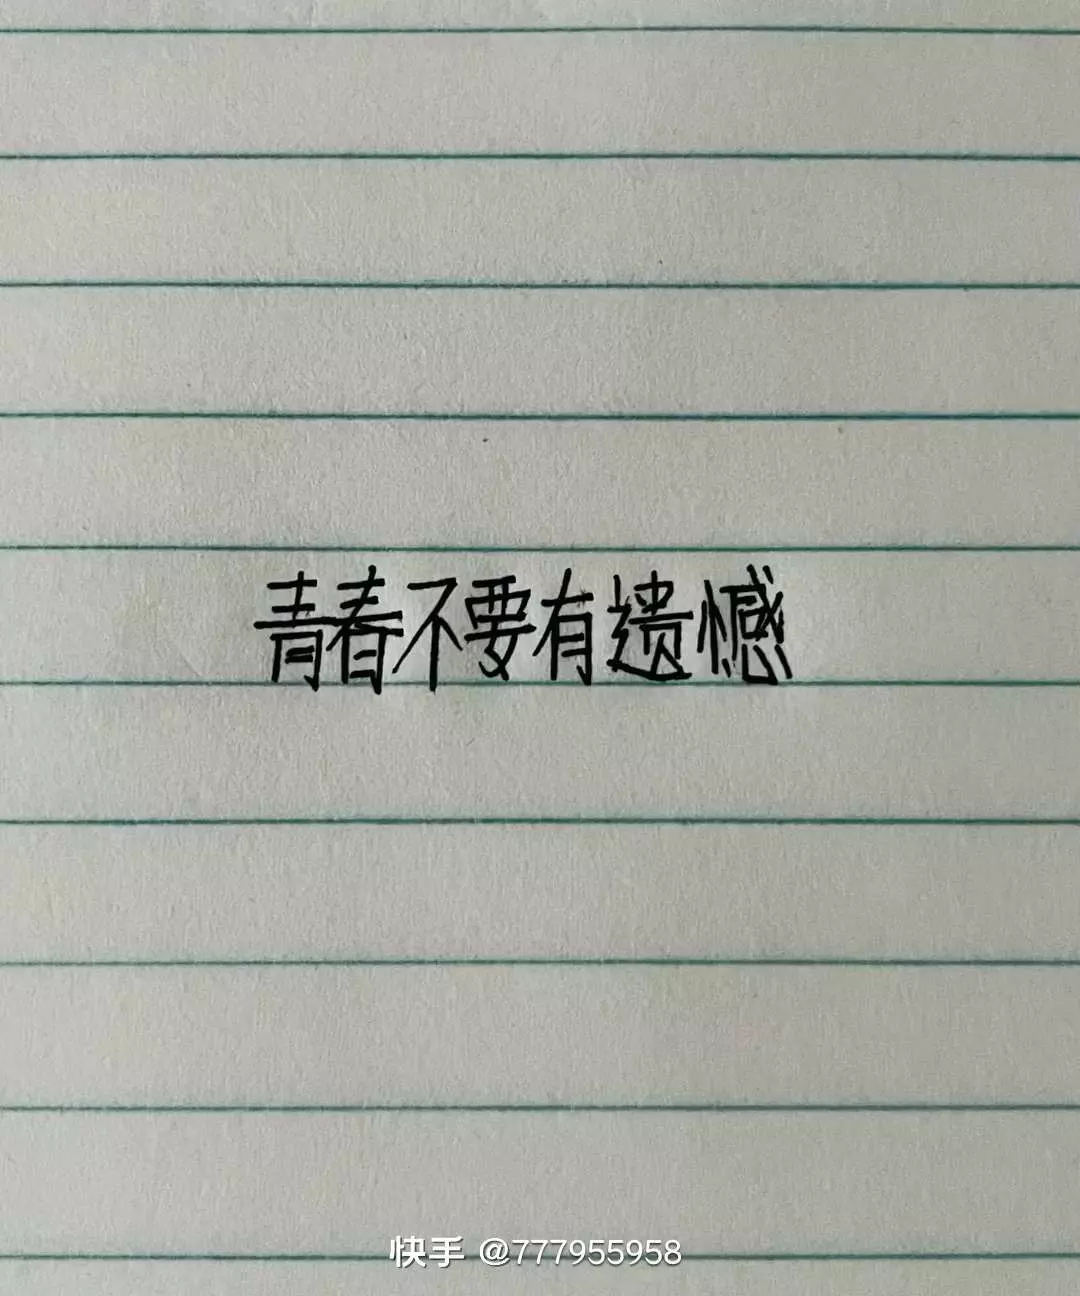 青春不要有遗憾
快手 @777955958